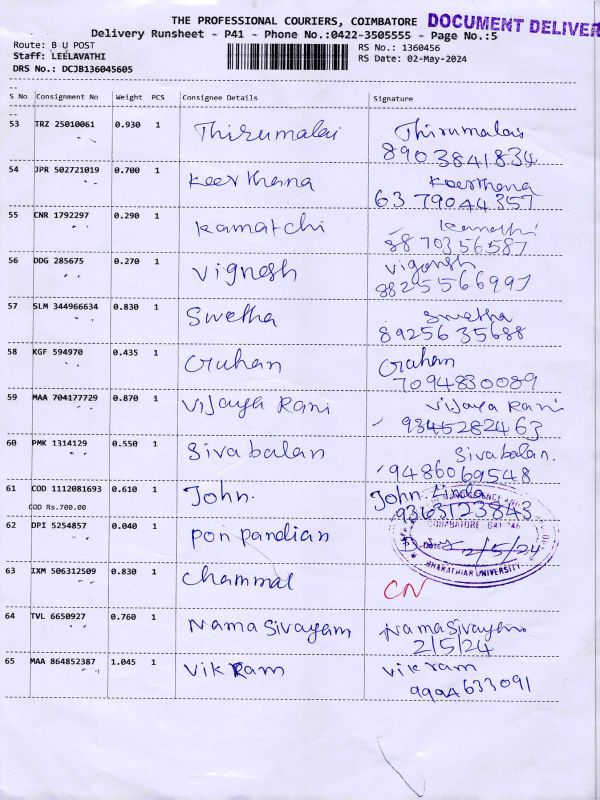 THE PROFESSIONAL COURIERS, COIMBATORE DOCUMENT DELIVER
Delivery Runsheet - P41 - Phone No.:0422-3505555 - Page No.:5
Route: B U POST RS No.: 1360456
Staff: LEELAVATHI RS Date: 02-May-2024
DRS No.: DCJB136045605
S No Consignment No Weight PCS Consignee Details Signature
53 TRZ 25010061 0.930 1 Thirumalai Thirumalai
8903841834
54 JPR 502721019 0.700 1 Keerthana Keerthana
63 79044357
55 CNR 1792297 0.290 1 Kamatchi
8870356587
56 DDG 285675 0.270 1 Vignesh Vignesh
57 SLM 344966634 0.830 1 Swetha Swetha
8925635688
58 KGF 594970 0.435 1 Guhan Guhan
7094830089
59 MAA 704177729 0.870 1 Vijaya Rani Vijaya Rani
9345282463
60 PMK 1314129 0.550 1 Sivabalan Sivabalan.
9486069548
61 COD 1112081693 0.610 1 John. John
COD Rs.700.00 9363123843
62 DPI 5254857 0.040 1 Pon pandian COIMBATORE 2/5/24
BHARATHIAR UNIVERSITY
63 IXM 506312509 0.830 1 Chammal CN
64 TVL 6650927 0.760 1 Nama Sivayam Nama Sivayam
2/5/24
65 MAA 864852387 1.045 1 Vikram Vikram
9994633091